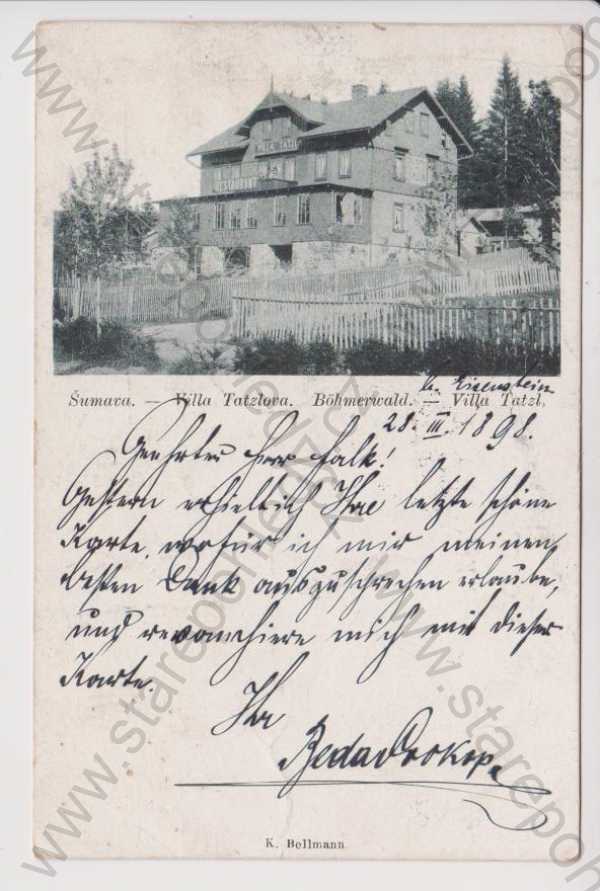 VILLA TATZL
RESTAURANT
Šumava. — Villa Tatzlova. Böhmerwald. — Villa Tatzl,
b. Eisenstein
28. III. 1898.
Geehrter Herr Falk!
Gestern erhielt ich Ihre letzte schöne
Karte, wofür ich mir meinen
besten Dank auszusprechen erlaube,
und revanchiere mich mit dieser
Karte.
Ihr
Beda Prokop
K. Bellmann
www.starepohlednice.cz